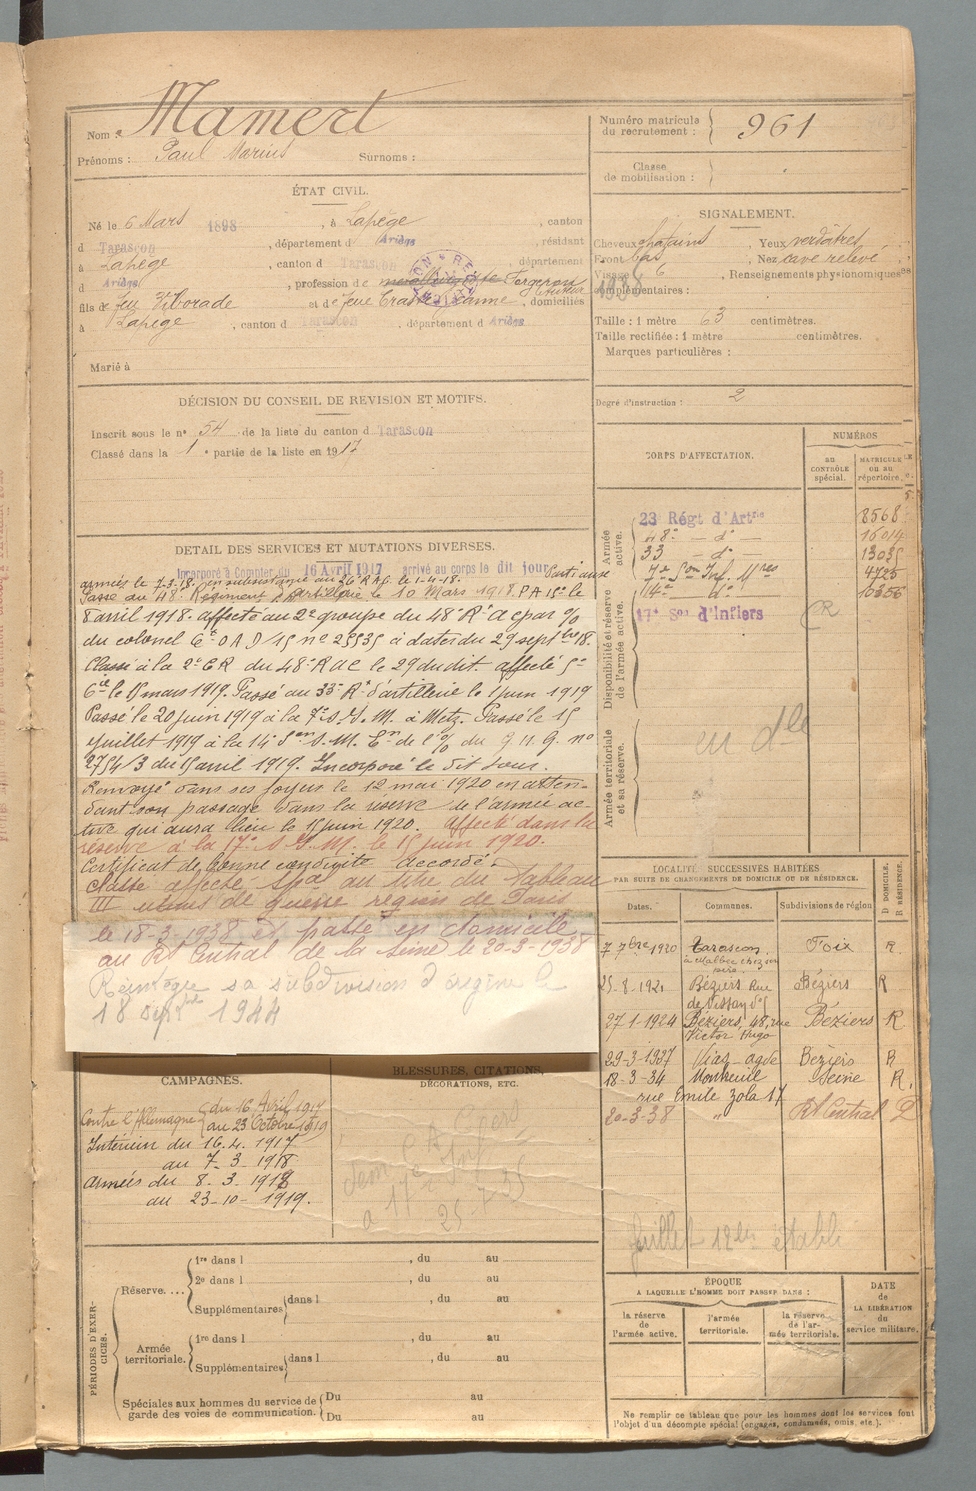 Nom : Mamert
Prénoms : Paul Marius Surnoms :
Numéro matricule du recrutement : 961
Classe de mobilisation :
ÉTAT CIVIL.
Né le 6 Mars 1898, à Lapège, canton
d Tarascon, département d Ariège, résidant
à Lapège, canton d Tarascon, département
d Ariège, profession de Forgeron
fils de feu et de feue Jeanne, domiciliés
à Lapège, canton d Tarascon, département d Ariège
Marié à
SIGNALEMENT.
Cheveux chatains. Yeux verdâtres
Front bas, Nez cave relevé
Visage Renseignements physionomiques
complémentaires :
1938
Taille : 1 mètre 63 centimètres.
Taille rectifiée : 1 mètre centimètres.
Marques particulières :
Degré d'instruction : 2
DÉCISION DU CONSEIL DE REVISION ET MOTIFS.
Inscrit sous le n° 54 de la liste du canton d Tarascon
Classé dans la 1e partie de la liste en 1917
CORPS D'AFFECTATION.
NUMÉROS
au CONTRÔLE spécial.
MATRICULE ou au répertoire.
Armée active.
23e Régt d'Artrie 8568
48e — d° — 16014
33 — d° — 13035
7e Son Inf. Mres 4725
14e — d° — 10356
Disponibilité et réserve de l'armée active.
17e Son d'Infiers CR
Armée territoriale et sa réserve.
DETAIL DES SERVICES ET MUTATIONS DIVERSES.
Incorporé à Compter du 16 Avril 1917 arrivé au corps le dit jour Parti aux
armées le 7-3-18. en subsistance au 26 RAC. le 1-4-18.
Passé au 48e Régiment d'Artillerie le 10 Mars 1918. P A 15e le
8 avril 1918. affecté au 2e groupe du 48e R A C par %
du colonel Ct O A D 15 n° 25535 à dater du 29 septbre 18.
Classé à la 2e C R du 48e R A C le 29 du dit. affecté 5e
Cie le 15 mars 1919. Passé au 33e Rt d'artillerie le 1 juin 1919
Passé le 20 juin 1919 à la 7e S. I. M. à Metz. Passé le 15
juillet 1919 à la 14e Son I. M. En de l'% du G. Q. G. n°
2754/3 du 15 avril 1919. Incorporé le dit jour.
Renvoyé dans ses foyers le 12 mai 1920 en atten-
dant son passage dans la réserve de l'armée ac-
tive qui aura lieu le 15 juin 1920. affecté dans la
réserve à la 17e S I. M. le 15 juin 1920.
Certificat de bonne conduite accordé.
Classé affecté Spal au titre du Tableau
III usines de guerre région de Paris
le 18-3-1938 et passé en domicile
au Rt Central de la Seine le 20-3-1938
Réintègre sa subdivision d'origine le
18 septbre 1944
LOCALITÉS SUCCESSIVES HABITÉES
PAR SUITE DE CHANGEMENTS DE DOMICILE OU DE RÉSIDENCE.
Dates. Communes. Subdivisions de région D DOMICILE. R RÉSIDENCE.
7 7bre 1920 Tarascon à Malbec chez son père. Foix R
25-8-1921 Béziers Rue Béziers R
27-1-1924 Béziers, 48, rue Victor Hugo Béziers R
29-3-1927 Vias - agde Béziers R
18-3-34 Montreuil Seine R.
rue Emile Zola 17
20-3-38 " Rt Central D
Juillet
CAMPAGNES.
Contre l'Allemagne du 16 Avril 1917
au 23 Octobre 1919
Intérieur du 16. 4. 1917
au 7- 3. 1918
Armées du 8. 3. 1918
au 23-10- 1919.
BLESSURES, CITATIONS, DÉCORATIONS, ETC.
PÉRIODES D'EXERCICES.
Réserve....
1re dans l , du au
2e dans l , du au
Supplémentaires dans l , du au
Armée territoriale.
1re dans l , du au
Supplémentaires dans l , du au
Spéciales aux hommes du service de garde des voies de communication.
Du au
Du au
ÉPOQUE
A LAQUELLE L'HOMME DOIT PASSER DANS :
la réserve de l'armée active.
l'armée territoriale.
la réserve de l'armée territoriale.
DATE de LA LIBÉRATION du service militaire.
Ne remplir ce tableau que pour les hommes dont les services font
l'objet d'un décompte spécial (engagés, condamnés, omis, etc.).